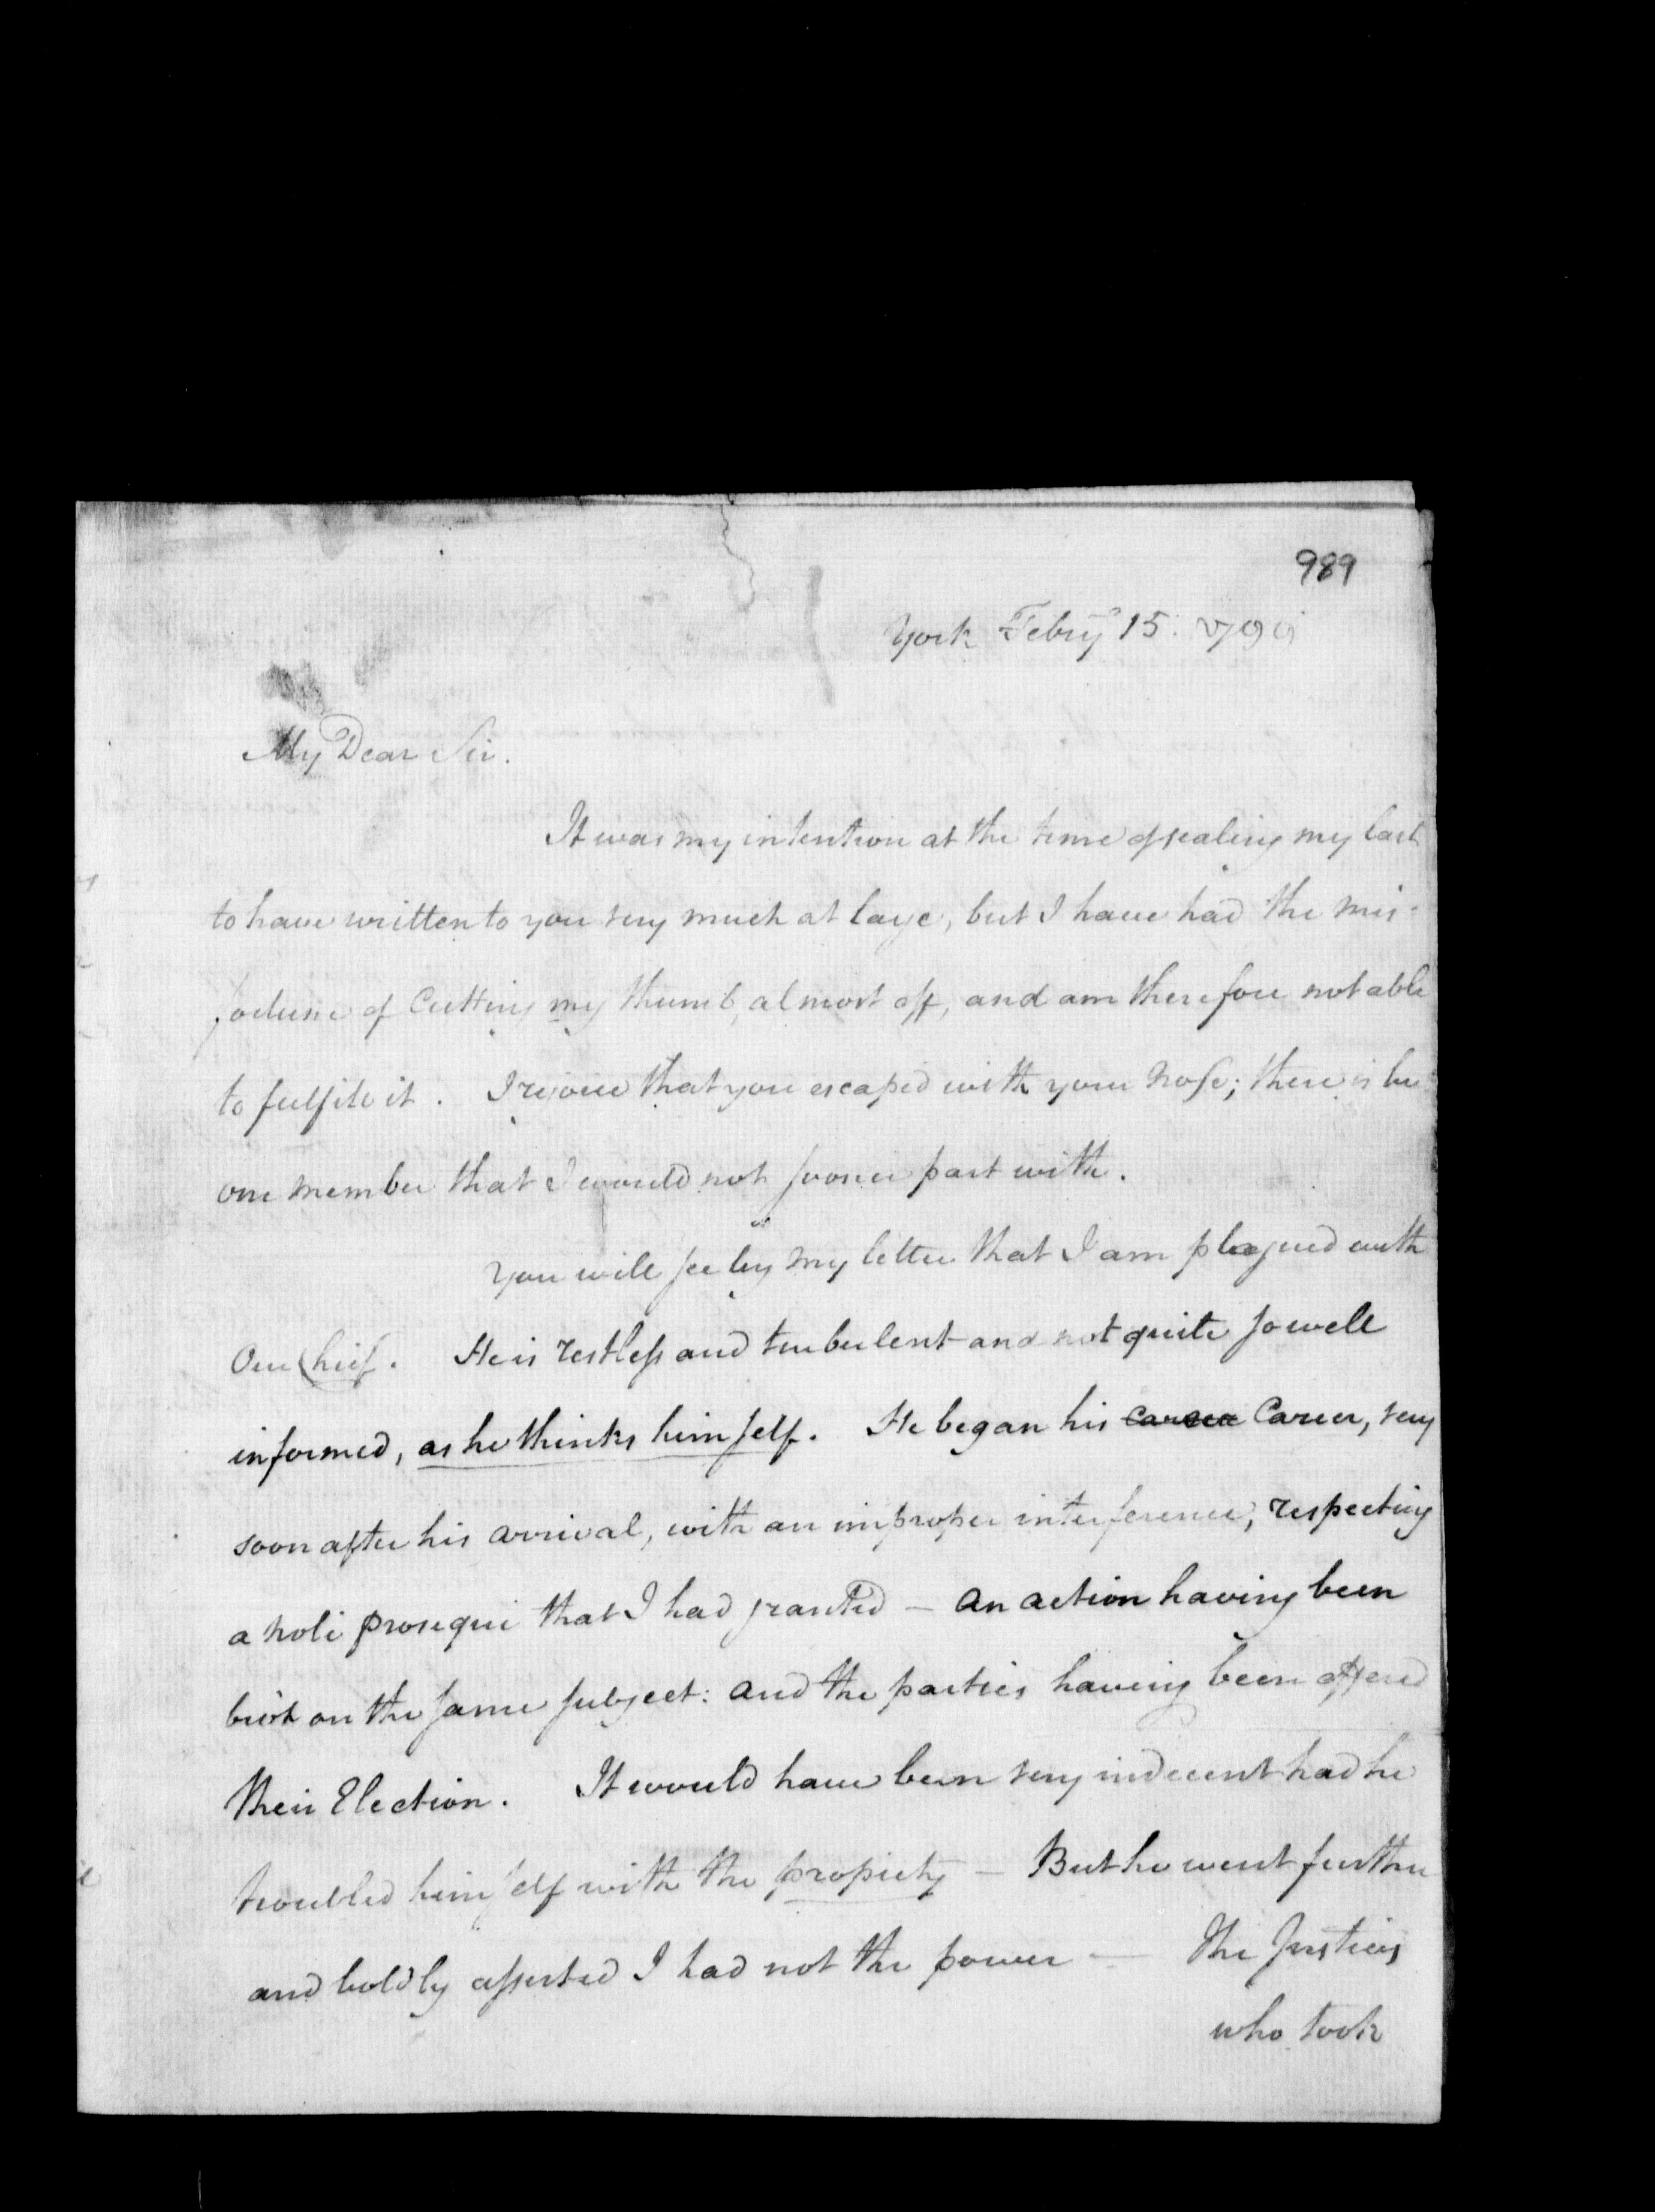 989
York Febry 15. 1799
My Dear Sir.
It was my intention at the time of sealing my last
to have written to you very much at large, but I have had the mis-
fortune of Cutting my thumb, almost off, and am therefore not able
to fulfile it. I rejoice that you escaped with your Nose; there is but
one member that I would not sooner part with.
You will see by my letter that I am plagued with
Our Chief. He is restless and turbulent and not quite so well
informed, as he thinks himself. He began his career Career, very
soon after his arrival, with an improper interference, respecting
a noli prosequi that I had granted — an action having been
bro't on the same subject: and the parties having been offered
their Election. It would have been very indecent had he
troubled himself with the propriety — But he went further
and boldly asserted I had not the power — The Justices
who took